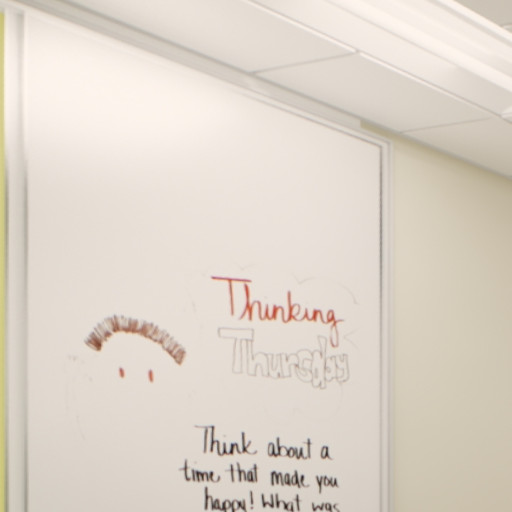 Thinking
Thursday
Think about a
time that made you
happy! What was